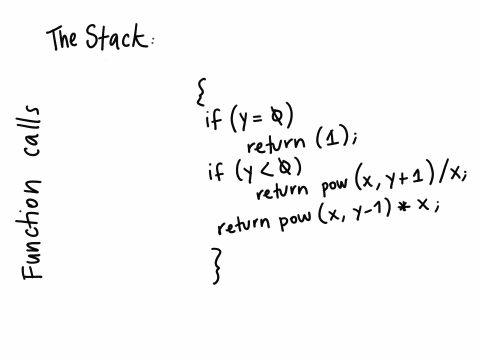 The Stack:
Function calls
{
if (y = 0)
return (1);
if (y < 0)
return pow (x, y+1)/x;
return pow (x, y-1) * x;
}